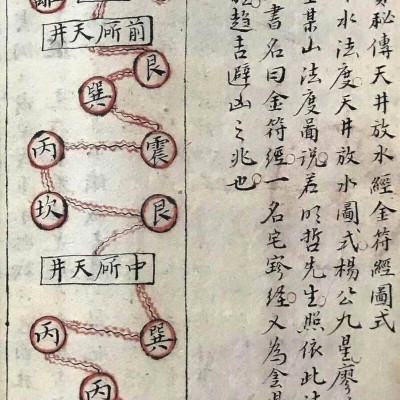 秘傳天井放水經金符經圖式
水法度天井放水圖式楊公九星廖
某山法度圖說若明哲先生照依此法
書名曰金符經一名宅經又為金
趨吉避凶之兆也
前所天井
艮
巽
震 丙
艮 坎
中所天井
巽 丙
丙